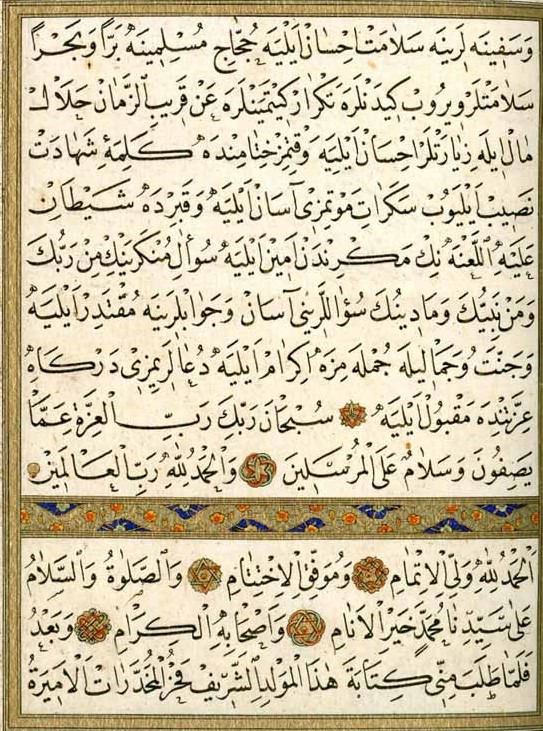 وَسَفِينَه لَرِينَه سَلَامَتْ اِحْسَانْ اَيْلِيَه حُجَّاجِ مُسْلِمِينَه بَرًّا وَبَحْرًا
سَلَامَتْلَرْ وِيرُوبْ كِيدَنْلَرَه تَكْرَارْ كِيتْمَيَنْلَرَه عَنْ قَرِيبِ الزَّمَانْ حَلَالْ
مَالْ اِيلَه زِيَارَتْلَرْ اِحْسَانْ اَيْلِيَه وَقْتِمِزْ خِتَامِنْدَه كَلِمَۀِ شَهَادَتْ
نَصِيبْ اَيْلَيُوبْ سَكَرَاتِ مَوْتِمِزِى آسَانْ اَيْلِيَه وَقَبِرْدَه شَيْطَانِ
عَلَيْهِ اللَّعْنَه نِكْ مَكْرِنْدَنْ اَمِينْ اَيْلِيَه سُؤَالِ مُنْكَرَيْنِكْ مَنْ رَبُّكَ
وَمَنْ نَبِيُّكَ وَمَا دِينُكَ سُؤَاللَّرِنِى آسَانْ وَجَوَابْلَرِينَه مُقْتَدِرْ اَيْلِيَه
وَجَنَّتْ وَجَمَالِيلَه جُمْلَه مِزَه اِكْرَامْ اَيْلِيَه دُعَالَرِيمِزِى دَرْكَاهِ
عِزَّتِنْدَه مَقْبُولْ اَيْلِيَه سُبْحَانَ رَبِّكَ رَبِّ الْعِزَّةِ عَمَّا
يَصِفُونَ وَسَلَامٌ عَلَى الْمُرْسَلِينَ وَالْحَمْدُ لِلّٰهِ رَبِّ الْعَالَمِينَ
اَلْحَمْدُ لِلّٰهِ وَلِىِّ الْاِتْمَامِ وَمُوَفِّقِ الْاِخْتِتَامِ وَالصَّلٰوةُ وَالسَّلَامُ
عَلٰى سَيِّدِنَا مُحَمَّدٍ خَيْرِ الْاَنَامِ وَاَصْحَابِهِ الْكِرَامِ وَبَعْدُ
فَلَمَّا طَلَبَ مِنِّى كِتَابَةَ هٰذَا الْمَوْلِدِ الشَّرِيفِ فَخْرُ الْمُخَدَّرَاتِ الْاَمِيرَةُ